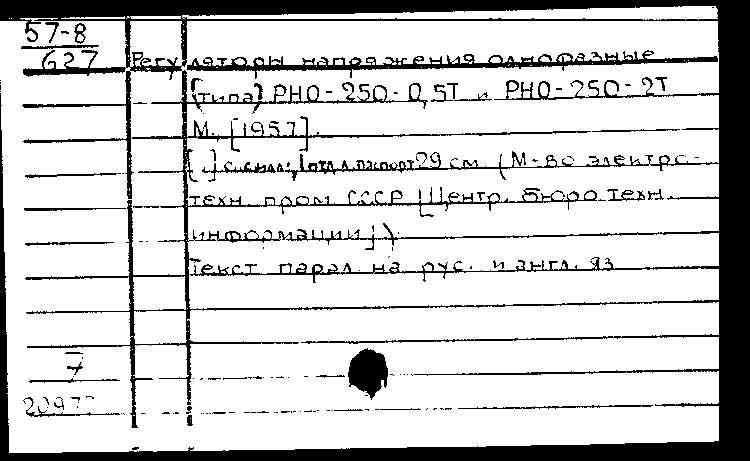 57-8
627
Регуляторы напряжения однофазные
(типа) РНО-250-0,5Т и РНО-250-2Т
М., [1957].
1 отд. л. паспорт 29 см (М-во электро-
техн. пром СССР [Центр. бюро техн.
информации])
Текст парал на рус. и англ. яз
7